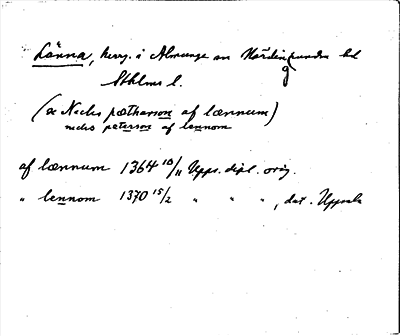 Länna, herrg. i Almunge sn Närdinghundra hd
Sthlms l.
(æ Niclis pætharson af lænnum)
niclis peterson af lennom
af lænnum 1364 10/11 Upps. dipl. orig.
" lennom 1370 15/2 " " ", dat. Uppsala